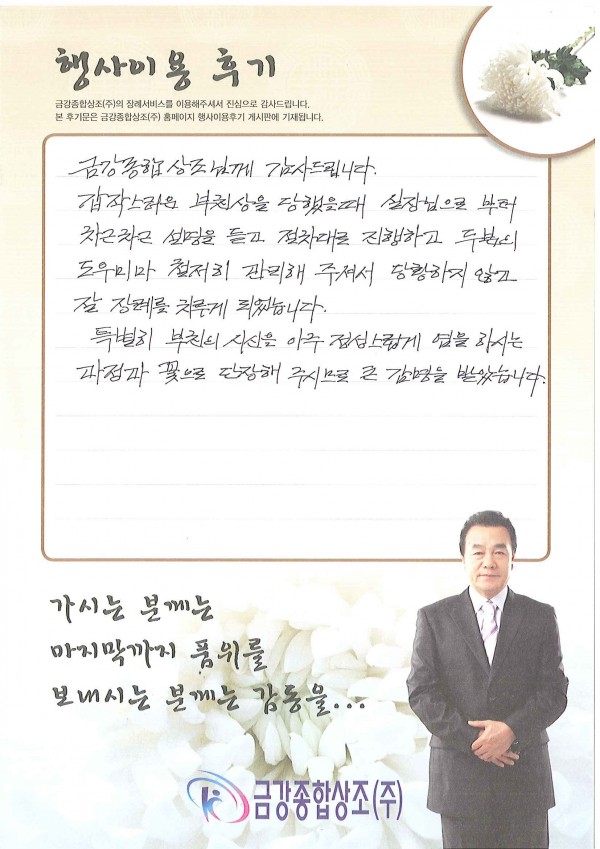 행사이용 후기
금강종합상조(주)의 장례서비스를 이용해주셔서 진심으로 감사드립니다.
본 후기문은 금강종합상조(주) 홈페이지 행사이용후기 게시판에 기재됩니다.
금강종합상조님께 감사드립니다.
갑작스러운 부친상을 당했을때 실장님으로 부터
차근차근 설명을 듣고 절차대로 진행하고 두분의
도우미마 철저히 관리해 주셔서 당황하지 않고
잘 장례를 치르게 되었습니다.
특별히 부친의 시신을 아주 정성스럽게 염을 하시는
과정과 꽃으로 단장해 주시므로 큰 감명을 받았습니다.
가시는 분께는
마지막까지 품위를
보내시는 분께는 감동을...
금강종합상조(주)